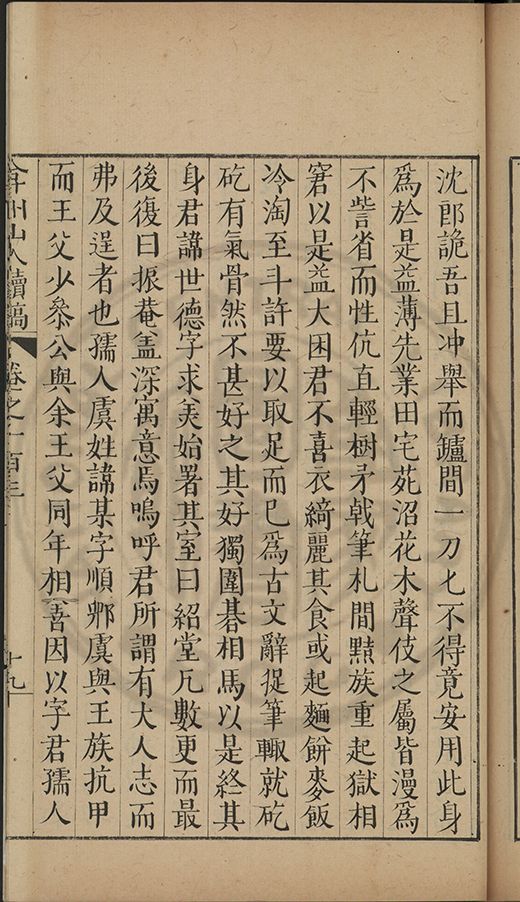 沈郎詭吾且冲舉而鑪間一刀匕不得竟安用此身
爲於是益薄先業田宅苑沼花木聲伎之屬皆漫爲
不訾省而性伉直輕樹矛戟筆札間黠族重起獄相
窘以是益大困君不喜衣綺麗其食或起麵餅麥飯
冷淘至斗許要以取足而已爲古文辭捉筆輙就矻
矻有氣骨然不甚好之其好獨圍碁相馬以是終其
身君諱世德字求美始署其室曰紹堂凡數更而最
後復曰振菴盖深寓意焉嗚呼君所謂有大人志而
弗及逞者也孺人虞姓諱某字順卿虞與王族抗甲
而王父少叅公與余王父同年相善因以字君孺人
弇州山人續稿 卷之一百三 十九